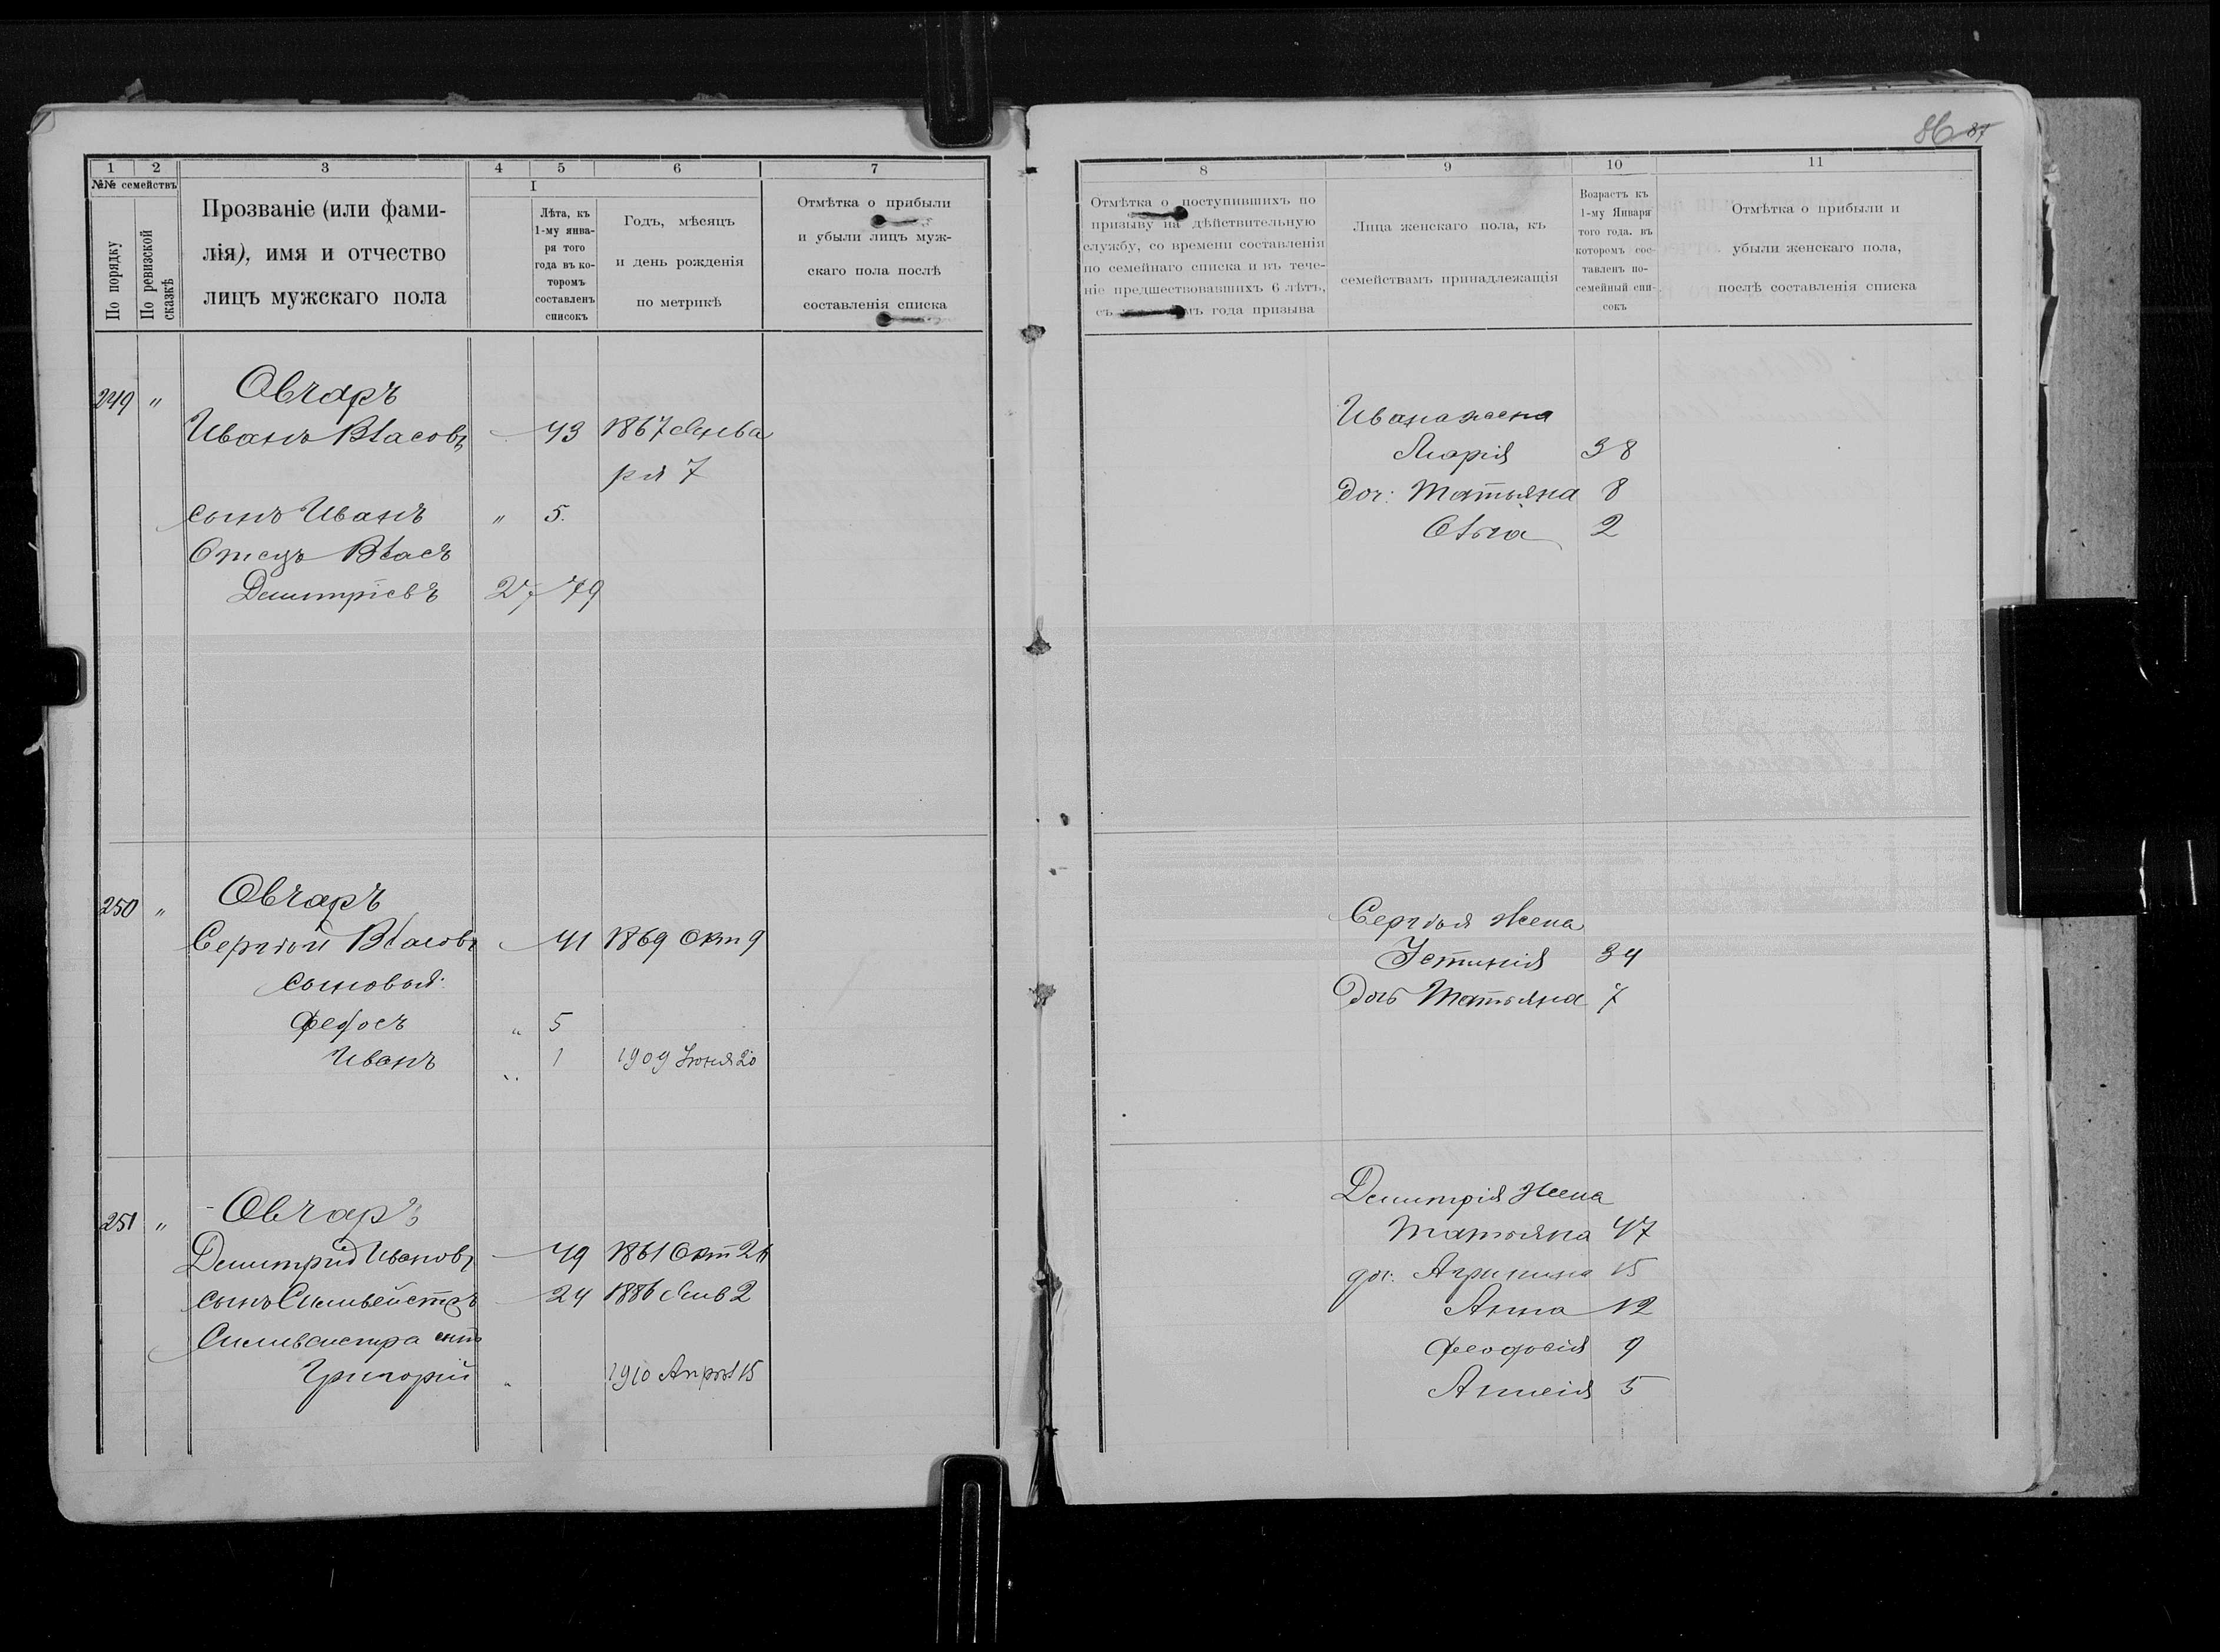 86 87
1 2 3 4 5 6 7
№№ семействъ
По порядку
По ревизской сказкѣ
Прозваніе (или фами-
лія), имя и отчество
лицъ мужскаго пола
I
Лѣта, къ
1-му янва-
ря того
года въ ко-
торомъ
составленъ
списокъ
Годъ, мѣсяцъ
и день рожденія
по метрикѣ
Отмѣтка о прибыли
и убыли лицъ муж-
скаго пола послѣ
составленія списка
249 " Овчаръ
Иванъ Власовъ 43 1867 Янва
ря 7
сынъ Иванъ " 5.
Отецъ Власъ
Димитріевъ 27 79
250 " Овчаръ
Сергѣй Власовъ 41 1869 Окт 9
сыновья:
Федосъ " 5
Иванъ " 1 1909 Іюня 20
251 " Овчаръ
Димитрій Ивановъ 49 1861 Окт 26
сынъ Сильвейстръ 24 1886 Янв 2
Силивестра сынъ
Григорій " 1910 Апрѣл 15
8 9 10 11
Отмѣтка о поступившихъ по
призыву на дѣйствительную
службу, со времени составленія
по семейнаго списка и въ тече-
ніе предшествовавшихъ 6 лѣтъ,
съ года призыва
Лица женскаго пола, къ
семействамъ принадлежащія
Возрастъ къ
1-му Января
того года. въ
которомъ сос-
тавленъ по-
семейный спи-
сокъ
Отмѣтка о прибыли и
убыли женскаго пола,
послѣ составленія списка
Ивана жена
Марія 38
Доч: Татьяна 8
Ольга 2
Сергѣя жена
Устинія 34
Дочь Татьяна 7
Димитрія жена
Татьяна 47
доч: Агрипина 15
Анна 12
Феодосія 9
Анисія 5